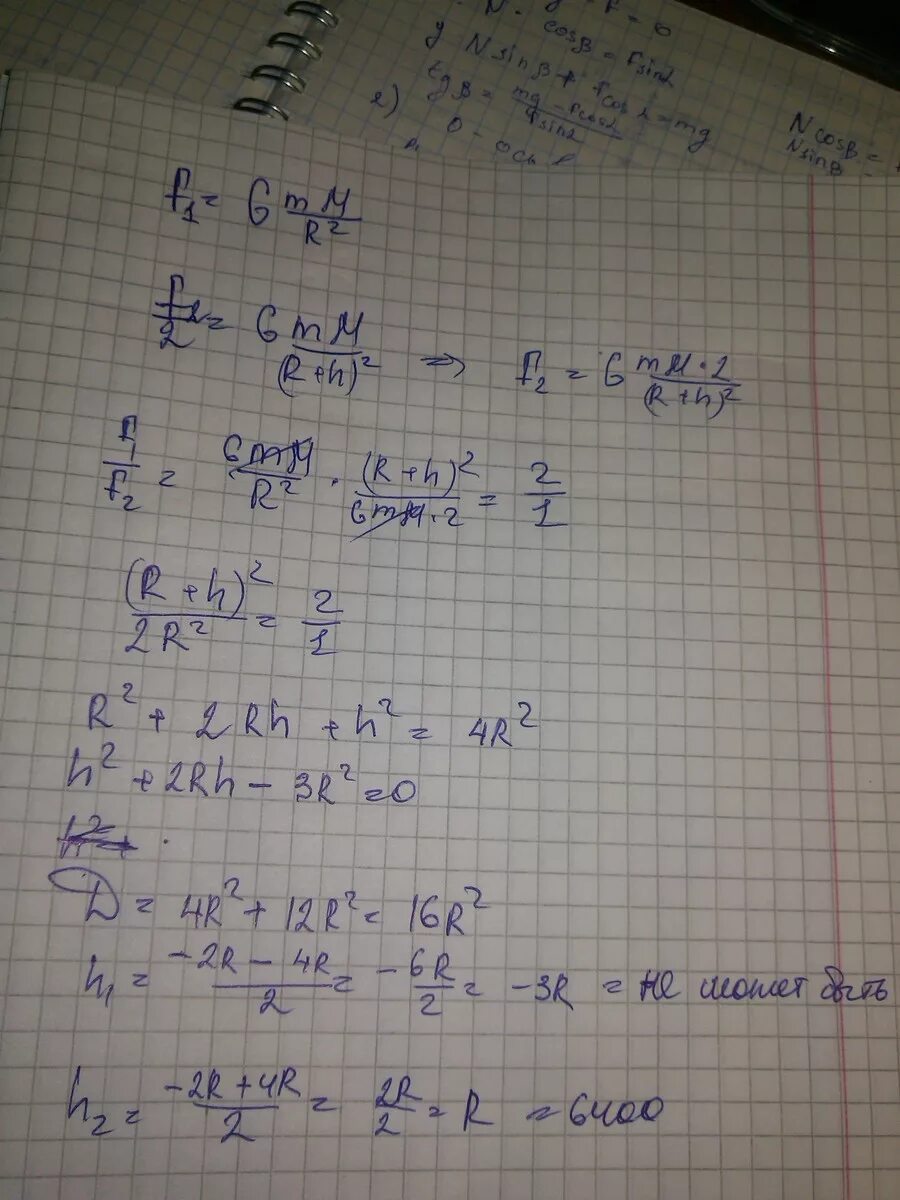 cosβ = Fsinα
y N sinβ + Fcosα = mg
tgβ = (mg - Fcosα)/(Fsinα)
N cosβ =
N sinβ
F₁ = G mM/R²
F₂/2 = G mM/(R+h)² => F₂ = G mM·2/(R+h)²
F/F₂ = GmM/R² · (R+h)²/(GmM·2) = 2/1
(R+h)²/2R² = 2/1
R² + 2Rh + h² = 4R²
h² + 2Rh - 3R² = 0
D = 4R² + 12R² = 16R²
h₁ = (-2R - 4R)/2 = -6R/2 = -3R = не может быть
h₂ = (-2R + 4R)/2 = 2R/2 = R = 6400